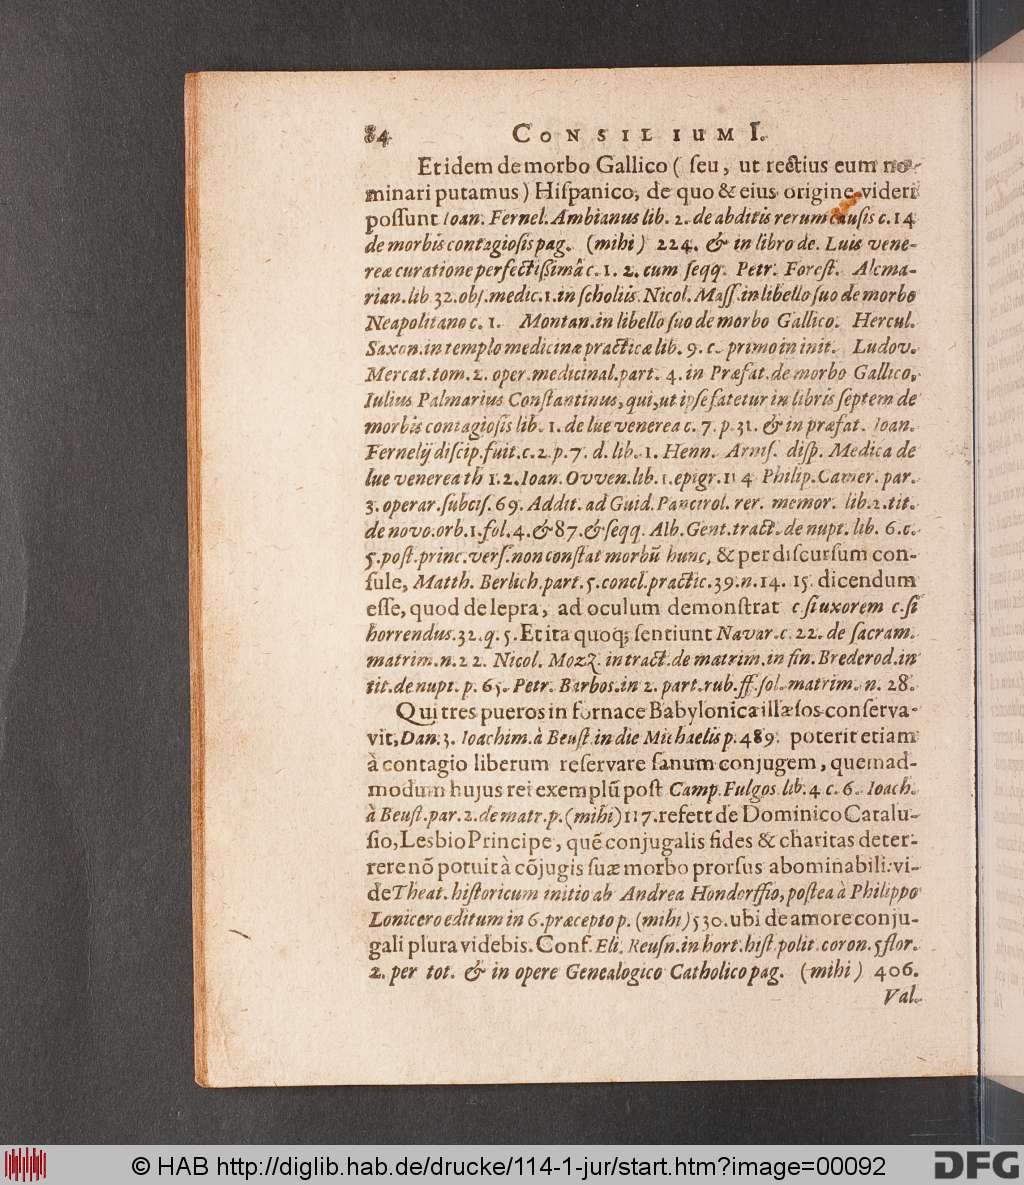 84 CONSILIUM I.
Et idem de morbo Gallico ( ſeu, ut rectius eum no-
minari putamus) Hiſpanico, de quo & eius origine videri
poſſunt Ioan. Fernel. Ambianus lib. 2. de abditis rerum cauſis c. 14
de morbis contagioſis pag. (mihi) 224. & in libro de. Luis vene-
reæ curatione perfectiſſimâ c. 1. 2. cum ſeqq. Petr. Foreſt. Alcma-
rian. lib 32. obſ. medic. 1. in ſcholiis. Nicol. Maſſ. in libello ſuo de morbo
Neapolitano c. 1. Montan. in libello ſuo de morbo Gallico. Hercul.
Saxon. in templo medicinæ practicæ lib. 9. c. primo in init. Ludov.
Mercat. tom. 2. oper. medicinal. part. 4. in Præfat. de morbo Gallico,
Iulius Palmarius Conſtantinus, qui, ut ipſe fatetur in libris ſeptem de
morbis contagioſis lib. 1. de lue venerea c. 7. p. 31. & in præfat. Ioan.
Fernelij diſcip. fuit. c. 2. p. 7. d. lib. 1. Henn. Arniſ. diſp. Medica de
lue venerea th 1. 2. Ioan. Ovven. lib. 1. epigr. 114 Philip. Camer. par.
3. operar. ſubciſ. 69. Addit. ad Guid. Pancirol. rer. memor. lib. 2. tit.
de novo. orb. 1. fol. 4. & 87. & ſeqq. Alb. Gent. tract. de nupt. lib. 6. c.
5. poſt. princ. verſ. non conſtat morbū hunc, & per diſcurſum con-
ſule, Matth. Berlich. part. 5. concl. practic. 39. n. 14. 15. dicendum
eſſe, quod de lepra, ad oculum demonſtrat c. ſi uxorem c. ſi
horrendus. 32. q. 5. Et ita quoq; ſentiunt Navar. c. 22. de ſacram.
matrim. n. 22. Nicol. Mozz. in tract. de matrim. in fin. Brederod. in
tit. de nupt. p. 65. Petr. Barbos. in 2. part. rub. ff. ſol. matrim. n. 28.
Qui tres pueros in fornace Babylonica illæſos conſerva-
vit, Dan. 3. Ioachim. à Beuſt. in die Michaelis p. 489. poterit etiam
à contagio liberum reſervare ſanum conjugem, quemad-
modum hujus rei exemplū poſt Camp. Fulgos. lib. 4 c. 6. Ioach.
à Beuſt. par. 2. de matr. p. (mihi) 117. refett de Dominico Catalu-
ſio, Lesbio Principe, quē conjugalis fides & charitas deter-
rere nō potuit à cōjugis ſuæ morbo prorſus abominabili: vi-
de Theat. hiſtoricum initio ab Andrea Hondorffio, poſtea à Philippo
Lonicero editum in 6. præcepto p. (mihi) 530. ubi de amore conju-
gali plura videbis. Conf. Eli. Reuſn. in hort. hiſt. polit. coron. 5 flor.
2. per tot. & in opere Genealogico Catholico pag. (mihi) 406.
Val.
© HAB http://diglib.hab.de/drucke/114-1-jur/start.htm?image=00092 DFG